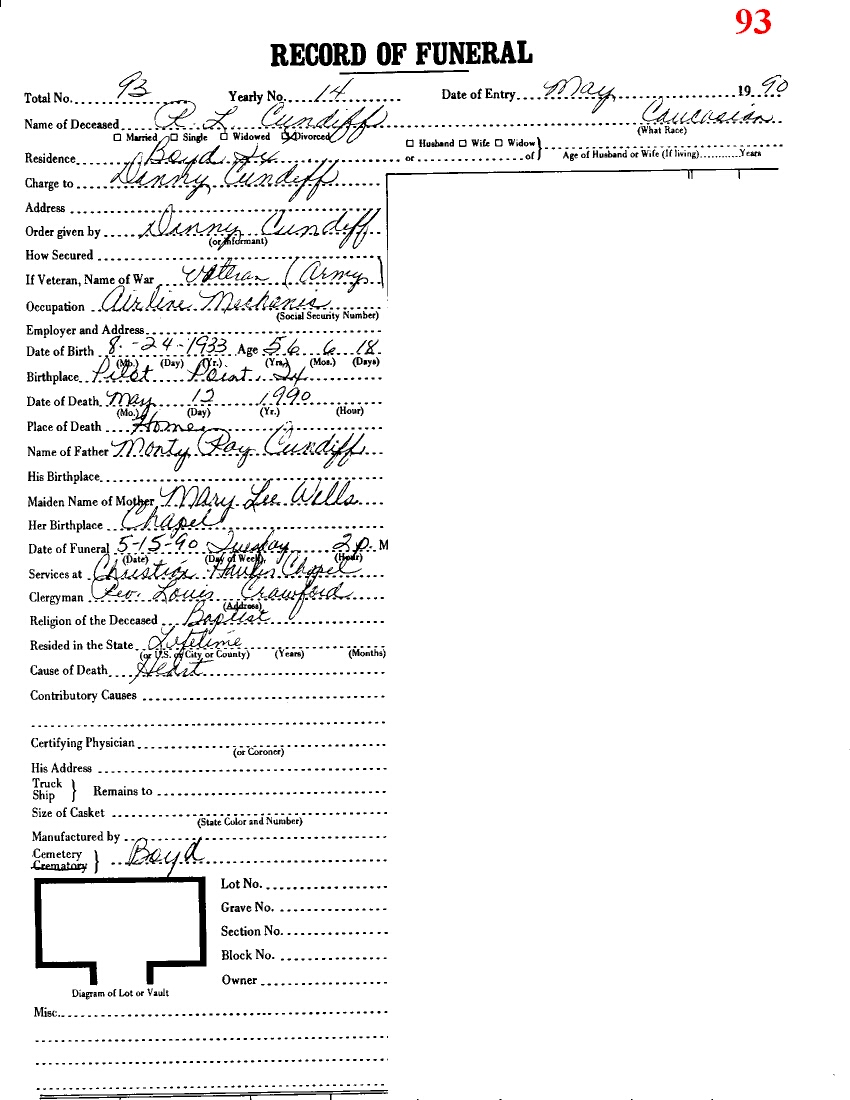 93
RECORD OF FUNERAL
Total No. 93 Yearly No. 14 Date of Entry May 19 90
Name of Deceased R. L. Cundiff Caucasian
(What Race)
☐ Married ☐ Single ☐ Widowed ☒ Divorced ☐ Husband ☐ Wife ☐ Widow }
Residence Boyd, Tx or of } Age of Husband or Wife (If living) Years
Charge to Danny Cundiff
Address
Order given by Danny Cundiff
(or Informant)
How Secured
If Veteran, Name of War Veteran (Army)
Occupation Airline Mechanic
(Social Security Number)
Employer and Address
Date of Birth 8-24-1933 Age 56 6 18
(Mo.) (Day) (Yr.) (Yrs.) (Mos.) (Days)
Birthplace Pilot Point, Tx
Date of Death May 12 1990
(Mo.) (Day) (Yr.) (Hour)
Place of Death Home
Name of Father Monty Ray Cundiff
His Birthplace
Maiden Name of Mother Mary Lee Wells
Her Birthplace Chapel
Date of Funeral 5-15-90 Tuesday 2 p. M
(Date) (Day of Week) (Hour)
Services at Christian Hawkins Chapel
Clergyman Rev. Louis Crawford
(Address)
Religion of the Deceased Baptist
Resided in the State Lifetime
(or U.S. or City or County) (Years) (Months)
Cause of Death Heart
Contributory Causes
Certifying Physician
(or Coroner)
His Address
Truck
Ship } Remains to
Size of Casket
(State Color and Number)
Manufactured by
Cemetery
Crematory } Boyd
Lot No.
Grave No.
Section No.
Block No.
Owner
Diagram of Lot or Vault
Misc.